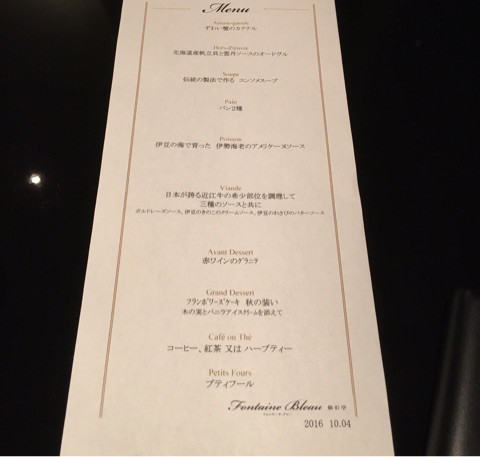 Menu
Amuse-gueule
ずわい蟹のカクテル
Hors-d'œuvre
北海道産帆立貝と雲丹ソースのオードヴル
Soupe
伝統の製法で作る コンソメスープ
Pain
パン2種
Poisson
伊豆の海で育った 伊勢海老のアメリケーヌソース
Viande
日本が誇る近江牛の希少部位を調理して
三種のソースと共に
ボルドレーズソース、伊豆のきのこのクリームソース、伊豆のわさびのバターソース
Avant Dessert
赤ワインのグラニテ
Grand Dessert
フランボワーズケーキ 秋の装い
木の実とバニラアイスクリームを添えて
Café ou Thé
コーヒー、紅茶 又は ハーブティー
Petits Fours
プティフール
Fontaine Bleau
2016 10.04